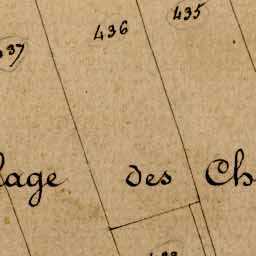 435
436
437
lage des Ch